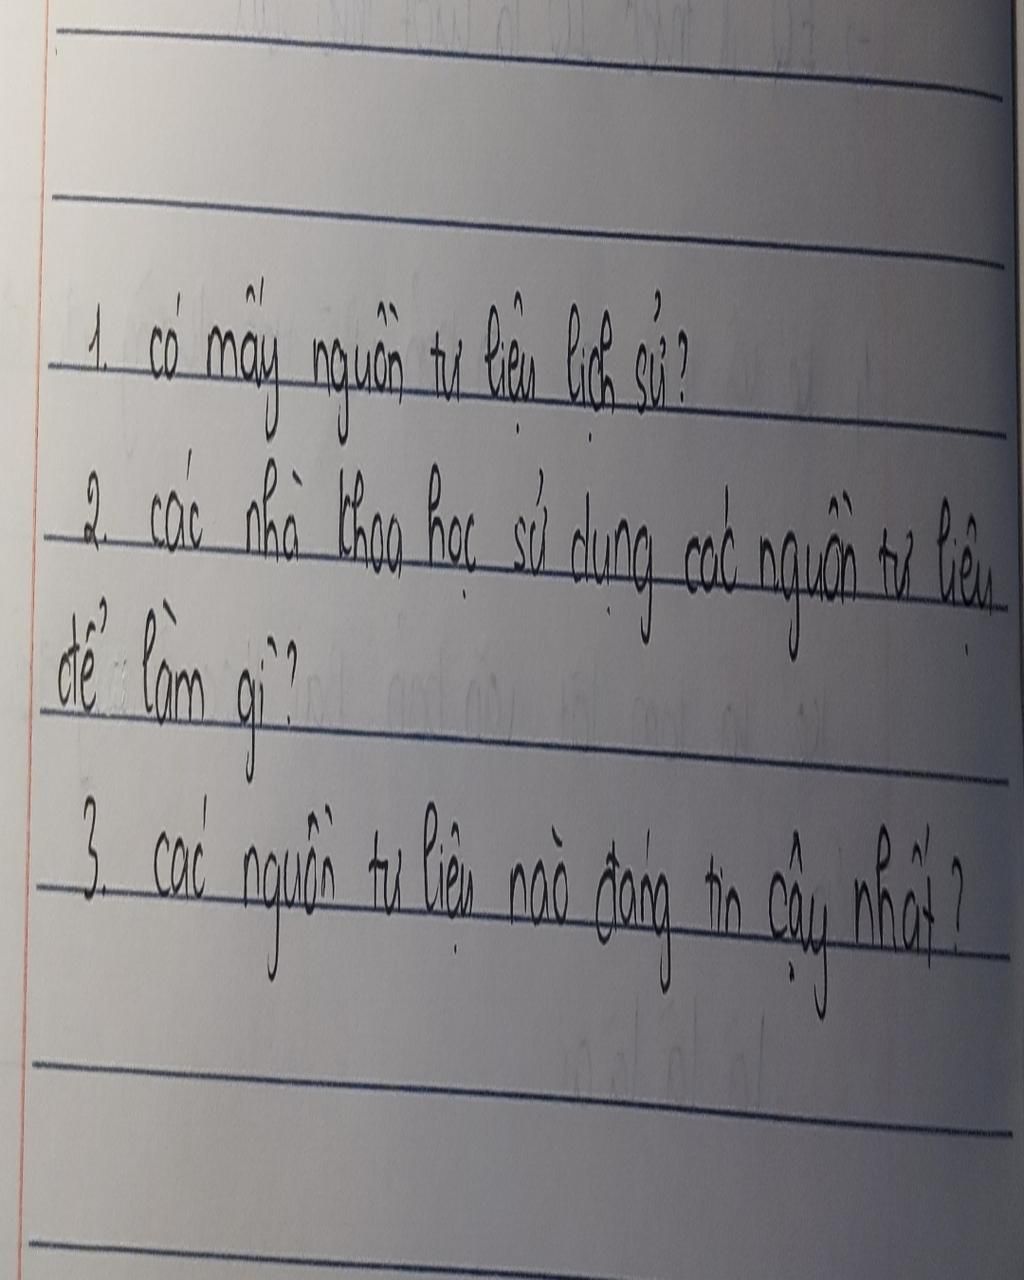 1. có mấy nguồn tư liệu lịch sử?
2. các nhà khoa học sử dụng các nguồn tư liệu
để làm gì?
3. các nguồn tư liệu nào đáng tin cậy nhất?